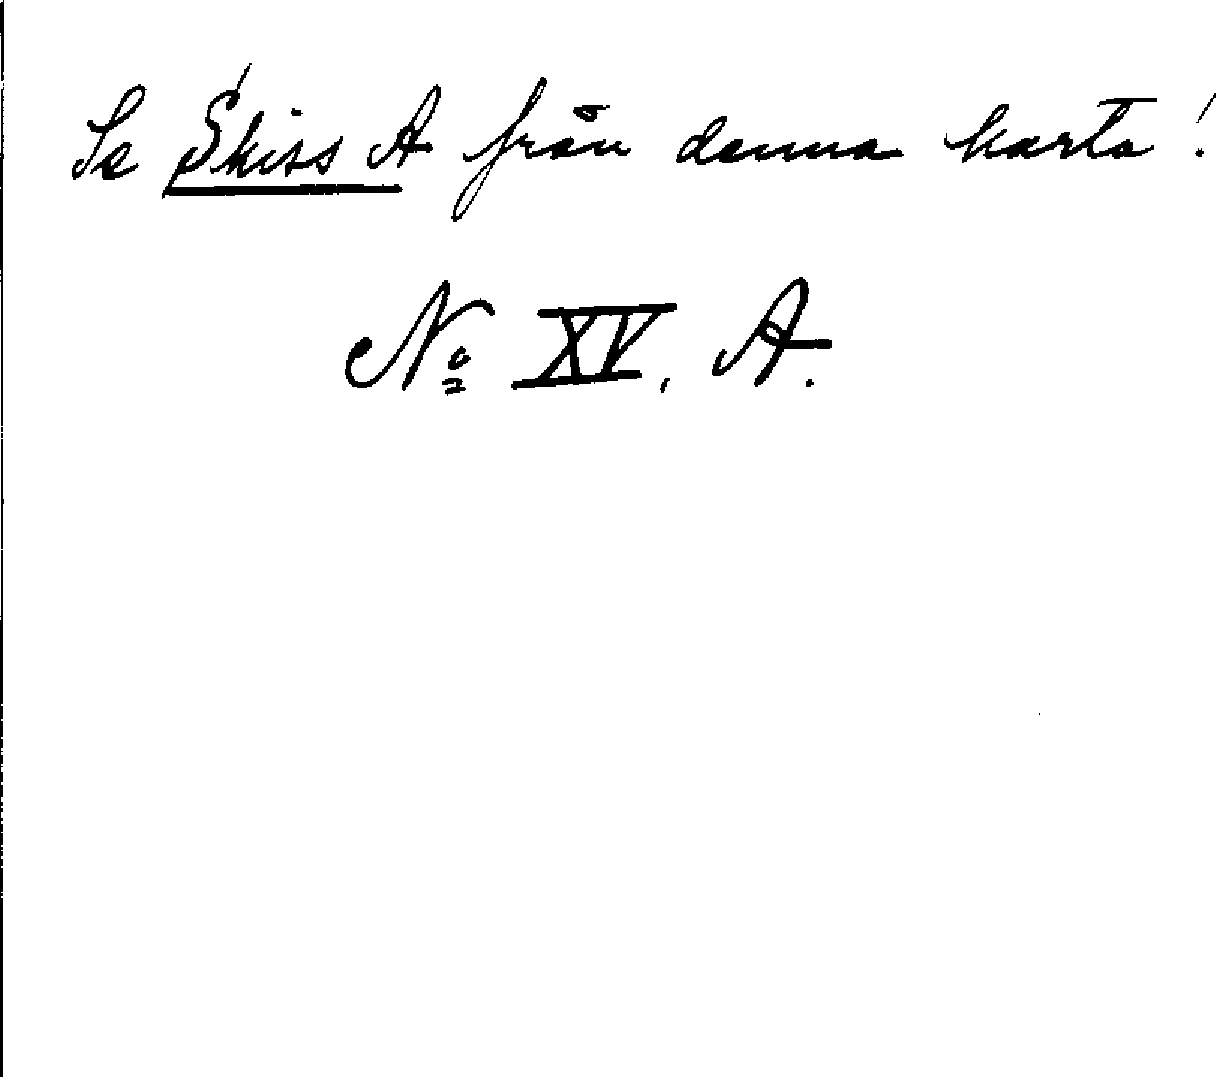 Se Skiss A från denna karta!
No XV, A.